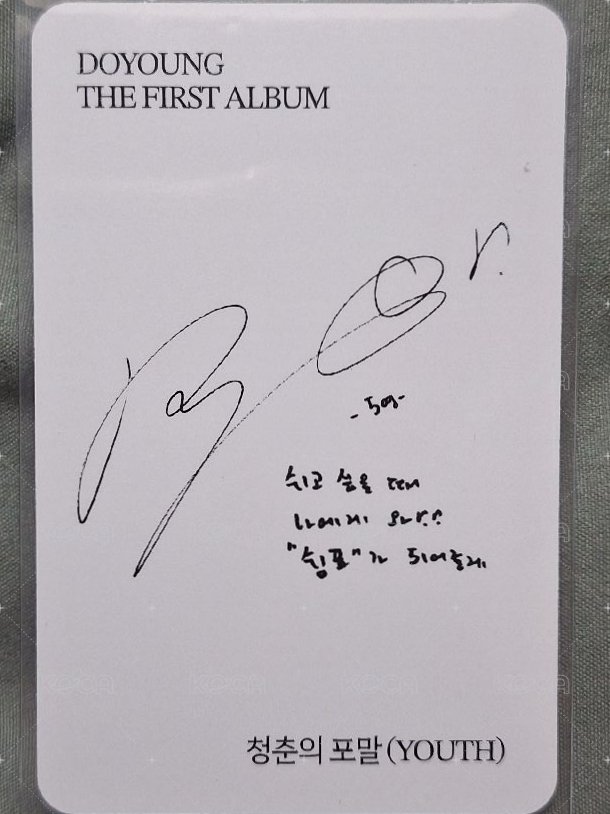 DOYOUNG
THE FIRST ALBUM
-도영-
쉬고 싶을 때
나에게 와..
"쉼표"가 되어줄게
청춘의 포말 (YOUTH)
KOCA
KOCA
KOCA
KOCA